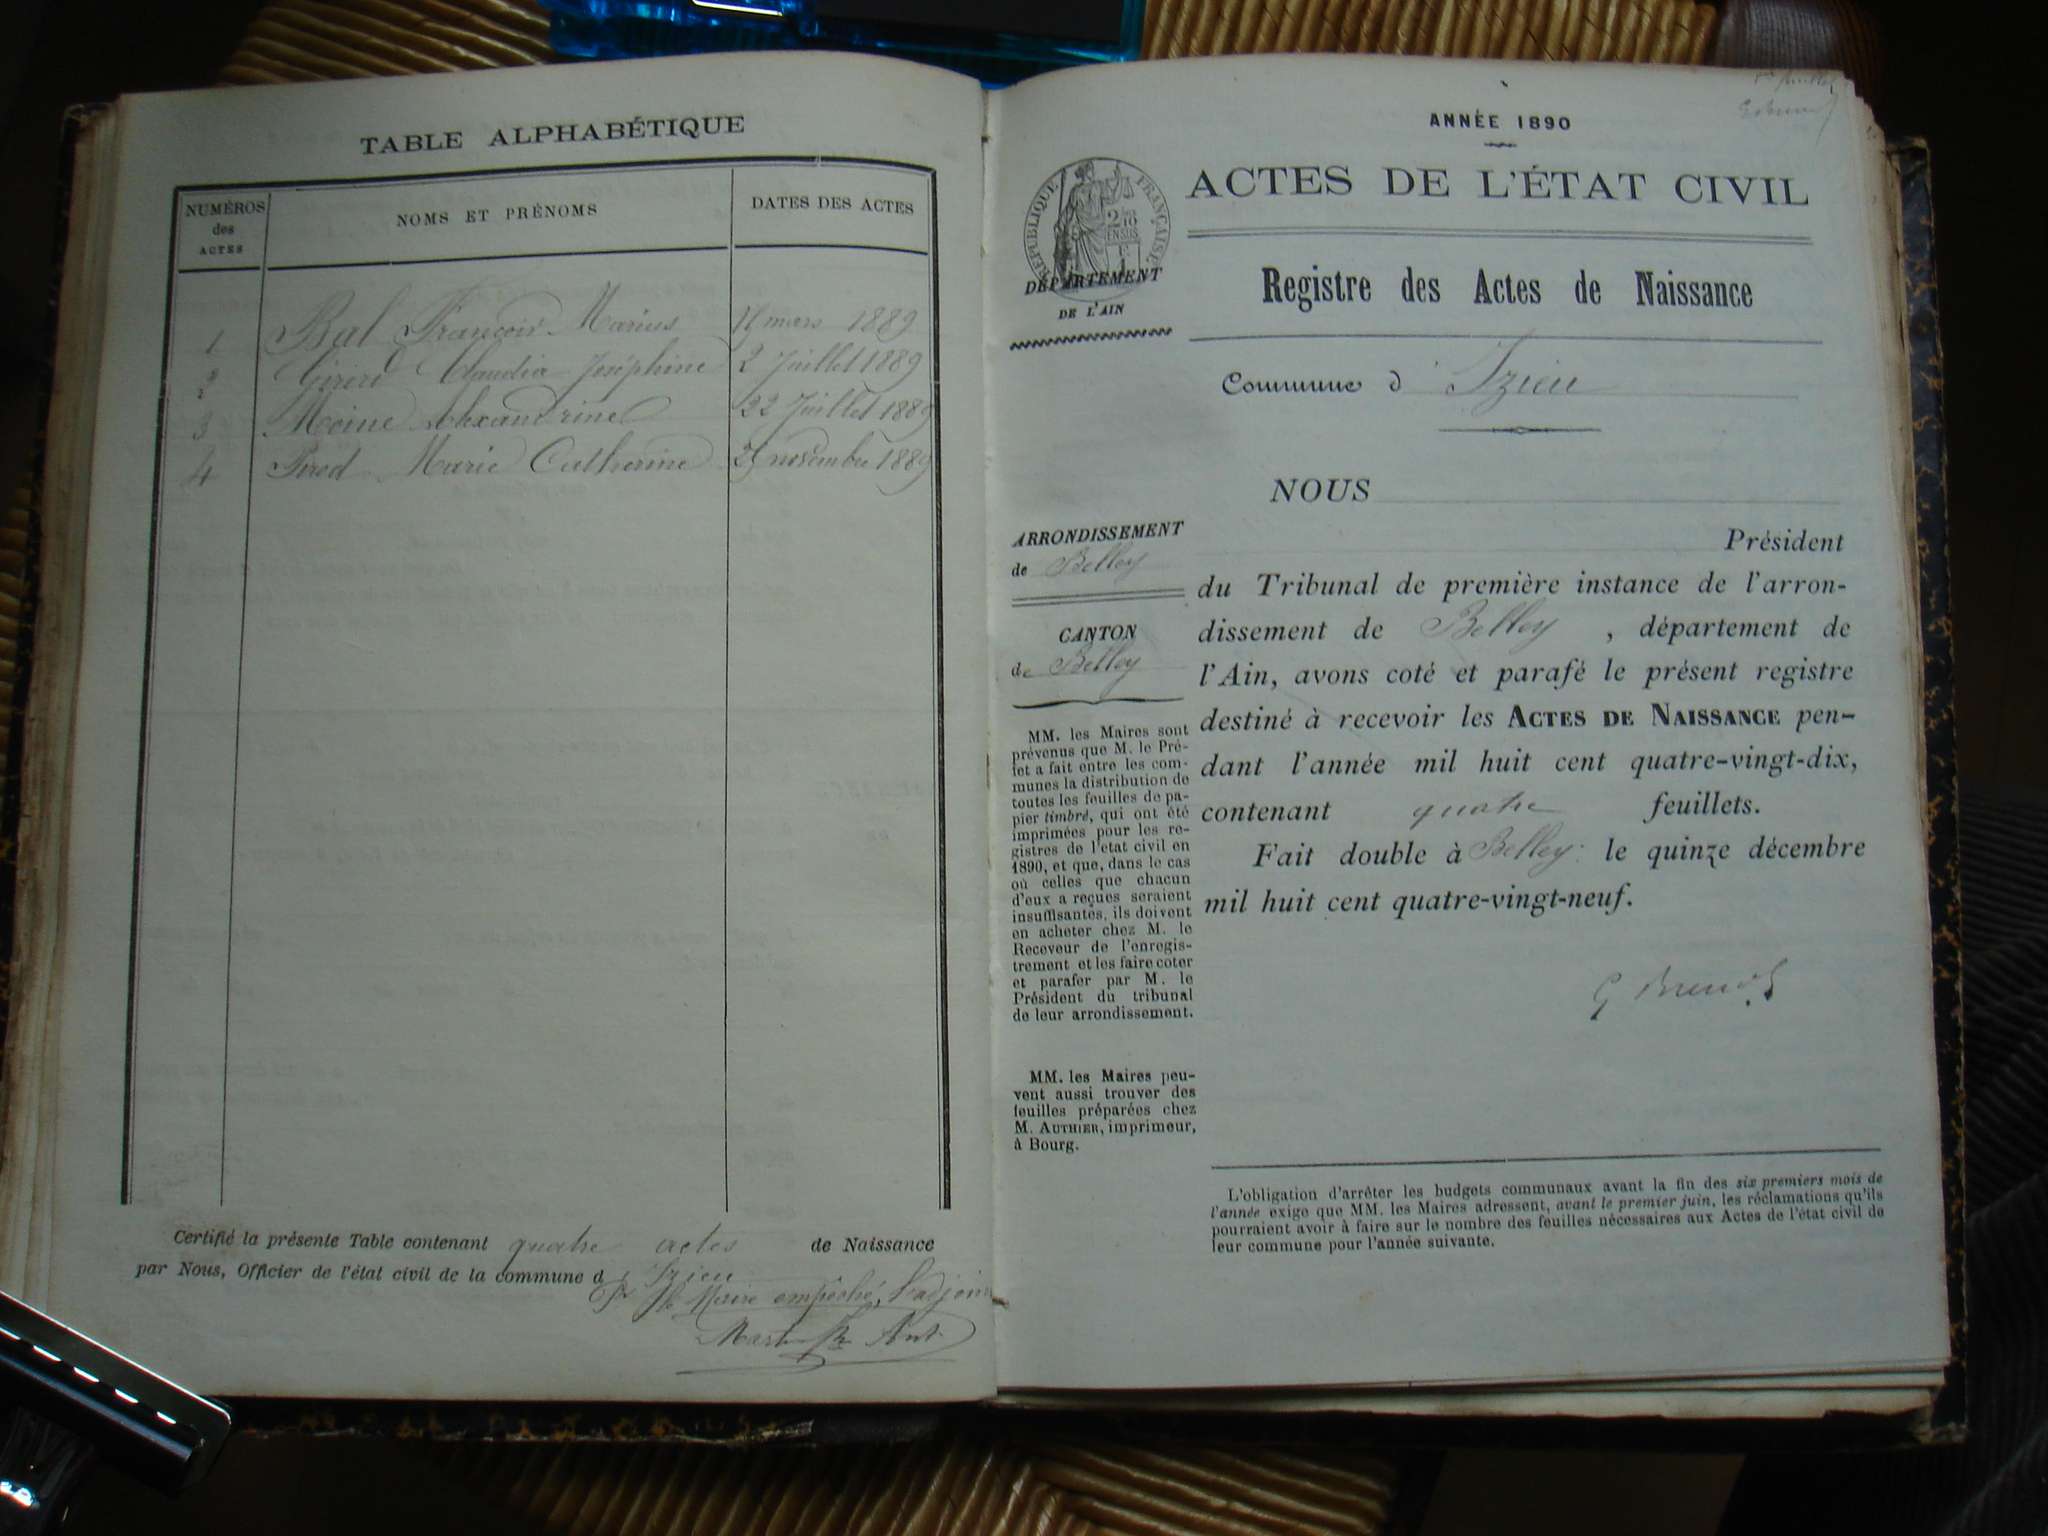 TABLE ALPHABÉTIQUE
NUMÉROS
des
ACTES
NOMS ET PRÉNOMS
DATES DES ACTES
1 Bal François Marius mars 1889
2 Claudia Joséphine 2 Juillet 1889
3 Moine Alexandrine 22 Juillet 1889
4 Marie Catherine novembre 1889
Certifié la présente Table contenant quatre actes de Naissance
par Nous, Officier de l'état civil de la commune d'Izieu
Pr le Maire empêché, l'adjoint
Ant.
ANNÉE 1890
ACTES DE L'ÉTAT CIVIL
RÉPUBLIQUE FRANÇAISE
DÉPARTEMENT
DE L'AIN
Registre des Actes de Naissance
Commune d'Izieu
NOUS
ARRONDISSEMENT
de Belley
CANTON
de Belley
MM. les Maires sont
prévenus que M. le Pré-
fet a fait entre les com-
munes la distribution de
toutes les feuilles de pa-
pier timbré, qui ont été
imprimées pour les re-
gistres de l'état civil en
1890, et que, dans le cas
où celles que chacun
d'eux a reçues seraient
insuffisantes, ils doivent
en acheter chez M. le
Receveur de l'enregis-
trement et les faire coter
et parafer par M. le
Président du tribunal
de leur arrondissement.
MM. les Maires peu-
vent aussi trouver des
feuilles préparées chez
M. AUTHIER, imprimeur,
à Bourg.
Président
du Tribunal de première instance de l'arron-
dissement de Belley, département de
l'Ain, avons coté et parafé le présent registre
destiné à recevoir les ACTES DE NAISSANCE pen-
dant l'année mil huit cent quatre-vingt-dix,
contenant quatre feuillets.
Fait double à Belley le quinze décembre
mil huit cent quatre-vingt-neuf.
L'obligation d'arrêter les budgets communaux avant la fin des six premiers mois de
l'année exige que MM. les Maires adressent, avant le premier juin, les réclamations qu'ils
pourraient avoir à faire sur le nombre des feuilles nécessaires aux Actes de l'état civil de
leur commune pour l'année suivante.